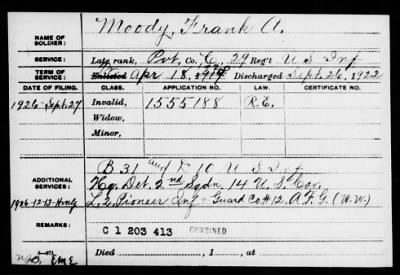 NAME OF SOLDIER: Moody, Frank A.
SERVICE: Late rank, Pvt, Co. C, 29 Reg't U S Inf
TERM OF SERVICE: Enlisted Apr 18, 1919 Discharged Sept. 26, 1922
DATE OF FILING. CLASS. APPLICATION NO. LAW. CERTIFICATE NO.
1926-Sept.27 Invalid, 1555188 R.E.
Widow,
Minor,
ADDITIONAL SERVICES: B 31 and 10 U S Inf
Hq. Det. 2nd Sqdn. 14 U.S. Cav.
L. 2, Pioneer Inf Guard Co # 12, A.F.G. (W.W.)
REMARKS: C 1 203 413 COMBINED
Died , 1 , at